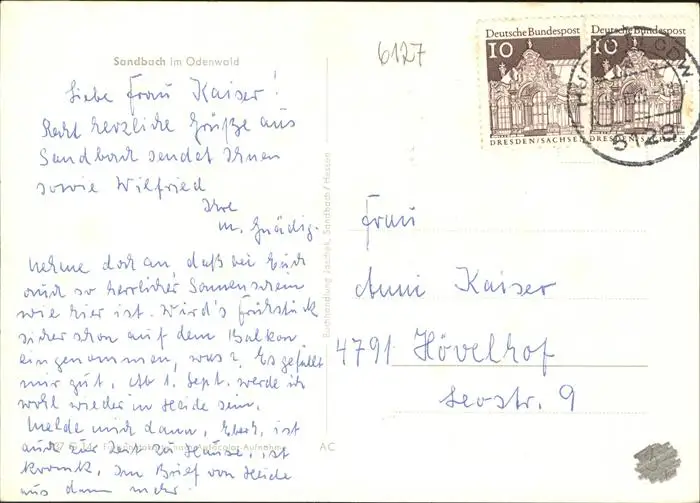 Sandbach im Odenwald
6127
Liebe Frau Kaiser!
Recht herzliche Grüße aus
Sandbach sendet Ihnen
sowie Wilfried
Ihre
M. Gnädig.
Nehme doch an, daß bei Euch
auch so herrlicher Sonnenschein
wie hier ist. Wird's Frühstück
sicher schon auf dem Balkon
eingenommen, was? Es gefällt
mir gut. Ab 1. Sept. werde ich
wohl wieder in Heide sein.
Melde mich dann, Eberh. ist
auch zur Zeit zu Hause, ist
krank. Im Brief von Heide
aus dann mehr.
AC
Buchhandlung Jaschek, Sandbach/Hessen
Deutsche Bundespost
10
DRESDEN/SACHSEN
Deutsche Bundespost
10
DRESDEN
6129
Frau
Anni Kaiser
4791 Hövelhof
Seestr. 9